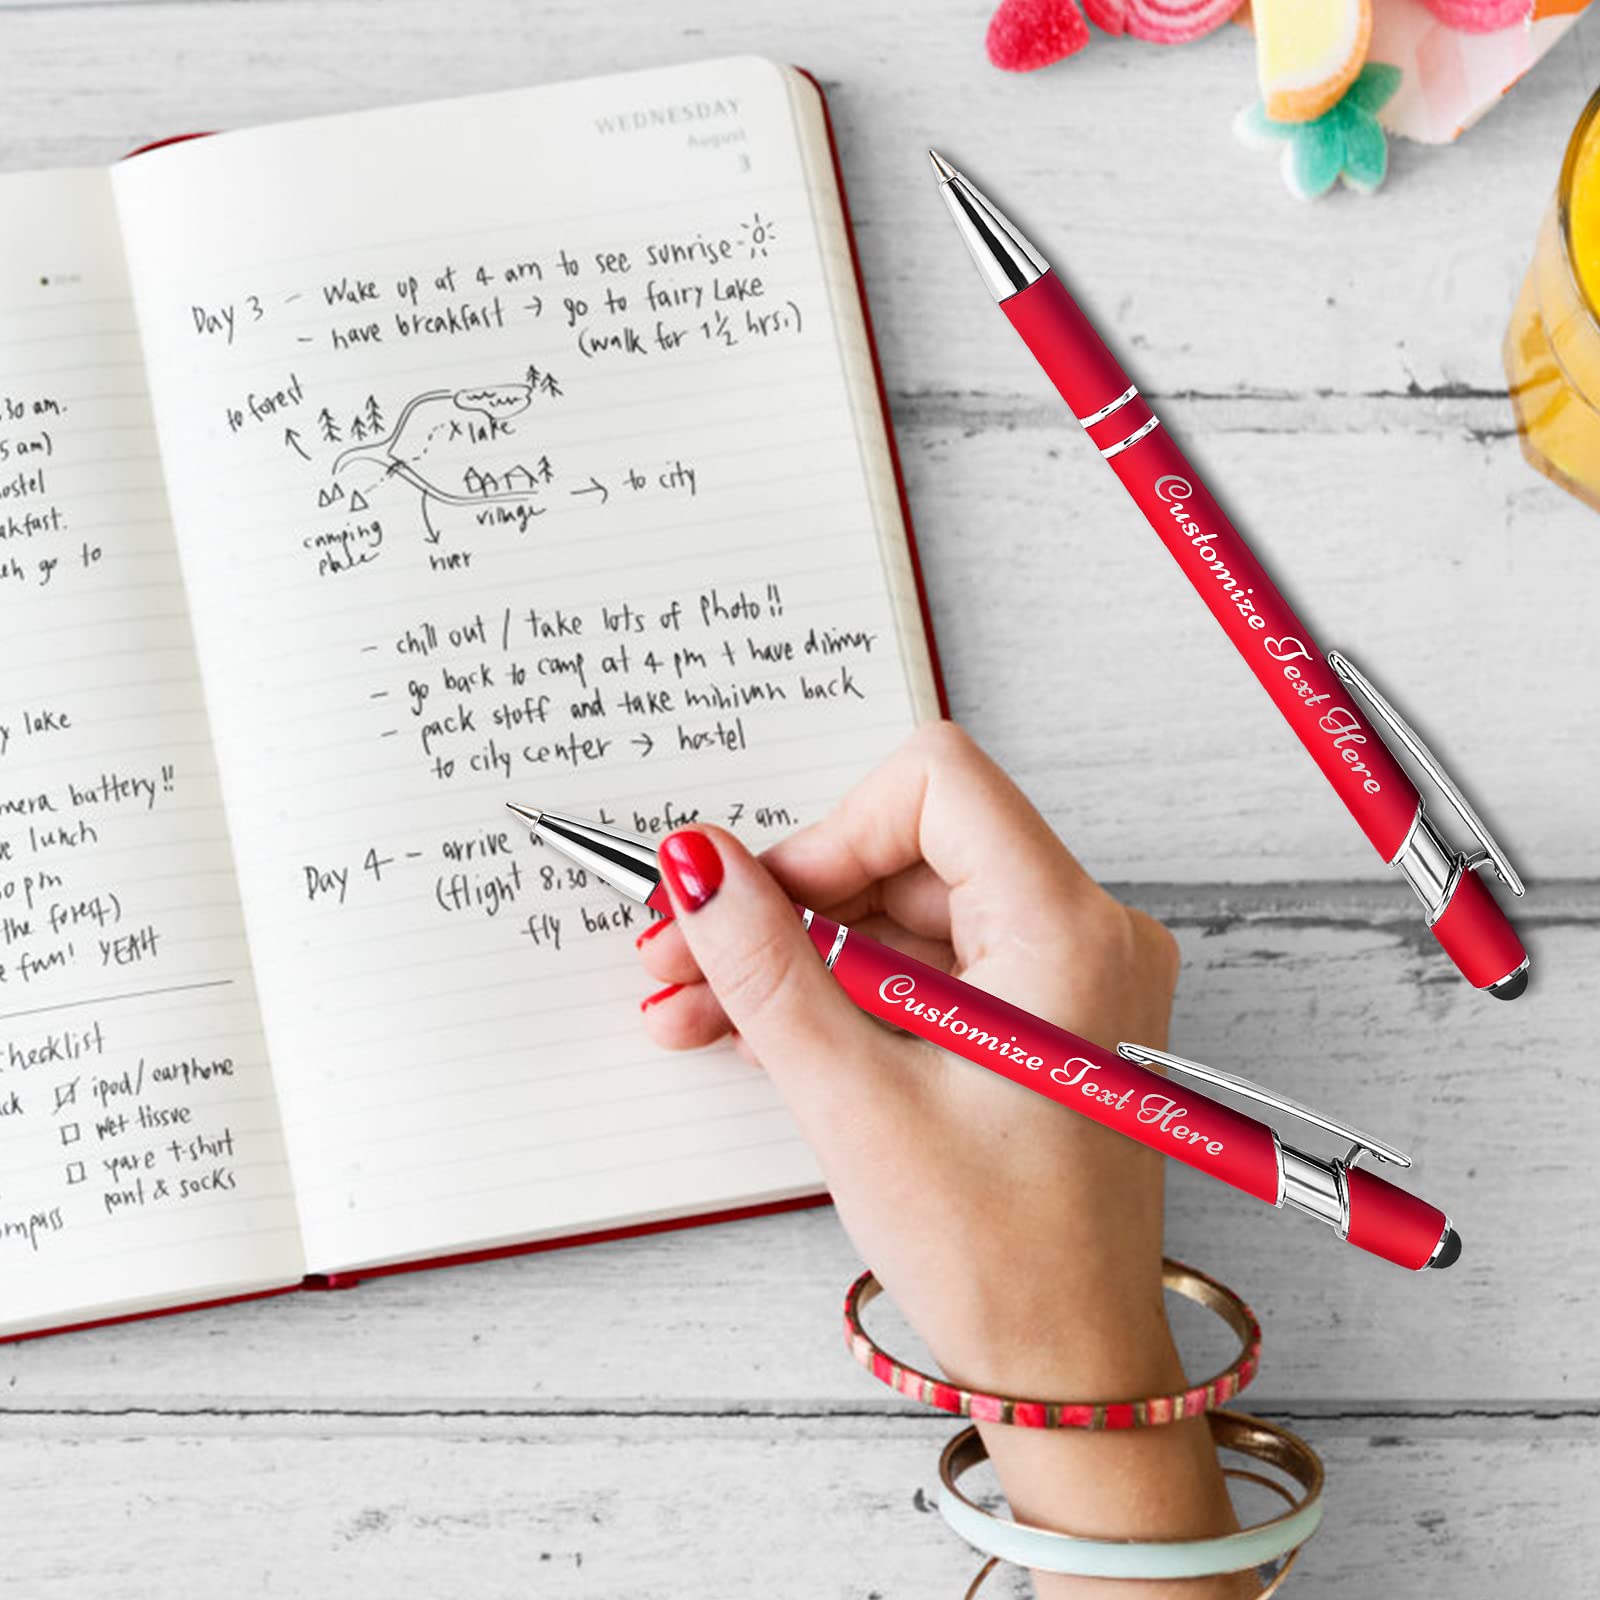 :30 am.
5 am)
ostel
akfast.
eh go to
y lake
mera battery!!
e lunch
0 pm
the forest)
e fun! YEAH
checklist
ck ☑ ipod/earphone
☐ wet tissue
☐ spare t-shirt
pant & socks
ompass
WEDNESDAY
August
3
Day 3 - Wake up at 4 am to see sunrise
- have breakfast → go to fairy Lake
(walk for 1½ hrs.)
to forest
x lake
village
→ to city
camping
place
river
- chill out / take lots of photo!!
- go back to camp at 4 pm + have dinner
- pack stuff and take minivan back
to city center → hostel
Day 4 - arrive before 7 am.
(flight 8:30
fly back
Customize Text Here
Customize Text Here